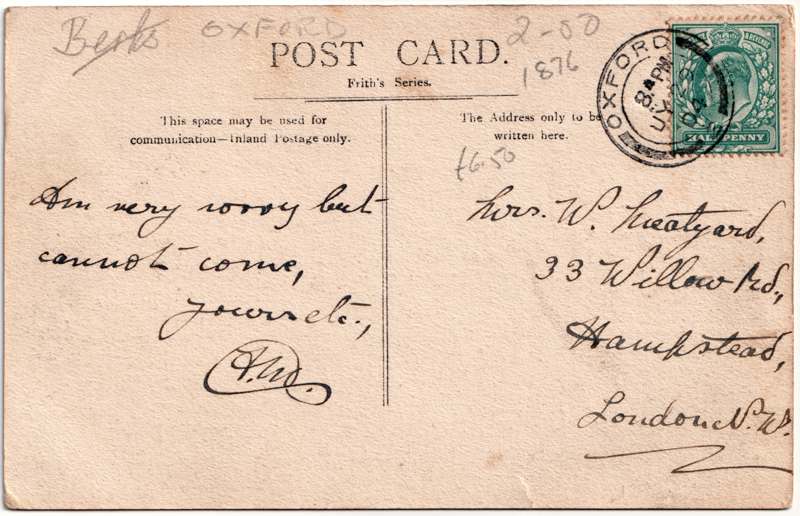 Berks OXFORD
2-00
1876
POST CARD.
Frith's Series.
This space may be used for
communication—Inland Postage only.
The Address only to be
written here.
£6.50
OXFORD
8 PM
JY 28
04
HALFPENNY
Am very sorry but
cannot come,
yours etc.,
Mrs. W. Meatyard,
33 Willow Rd.,
Hampstead,
London N.W.